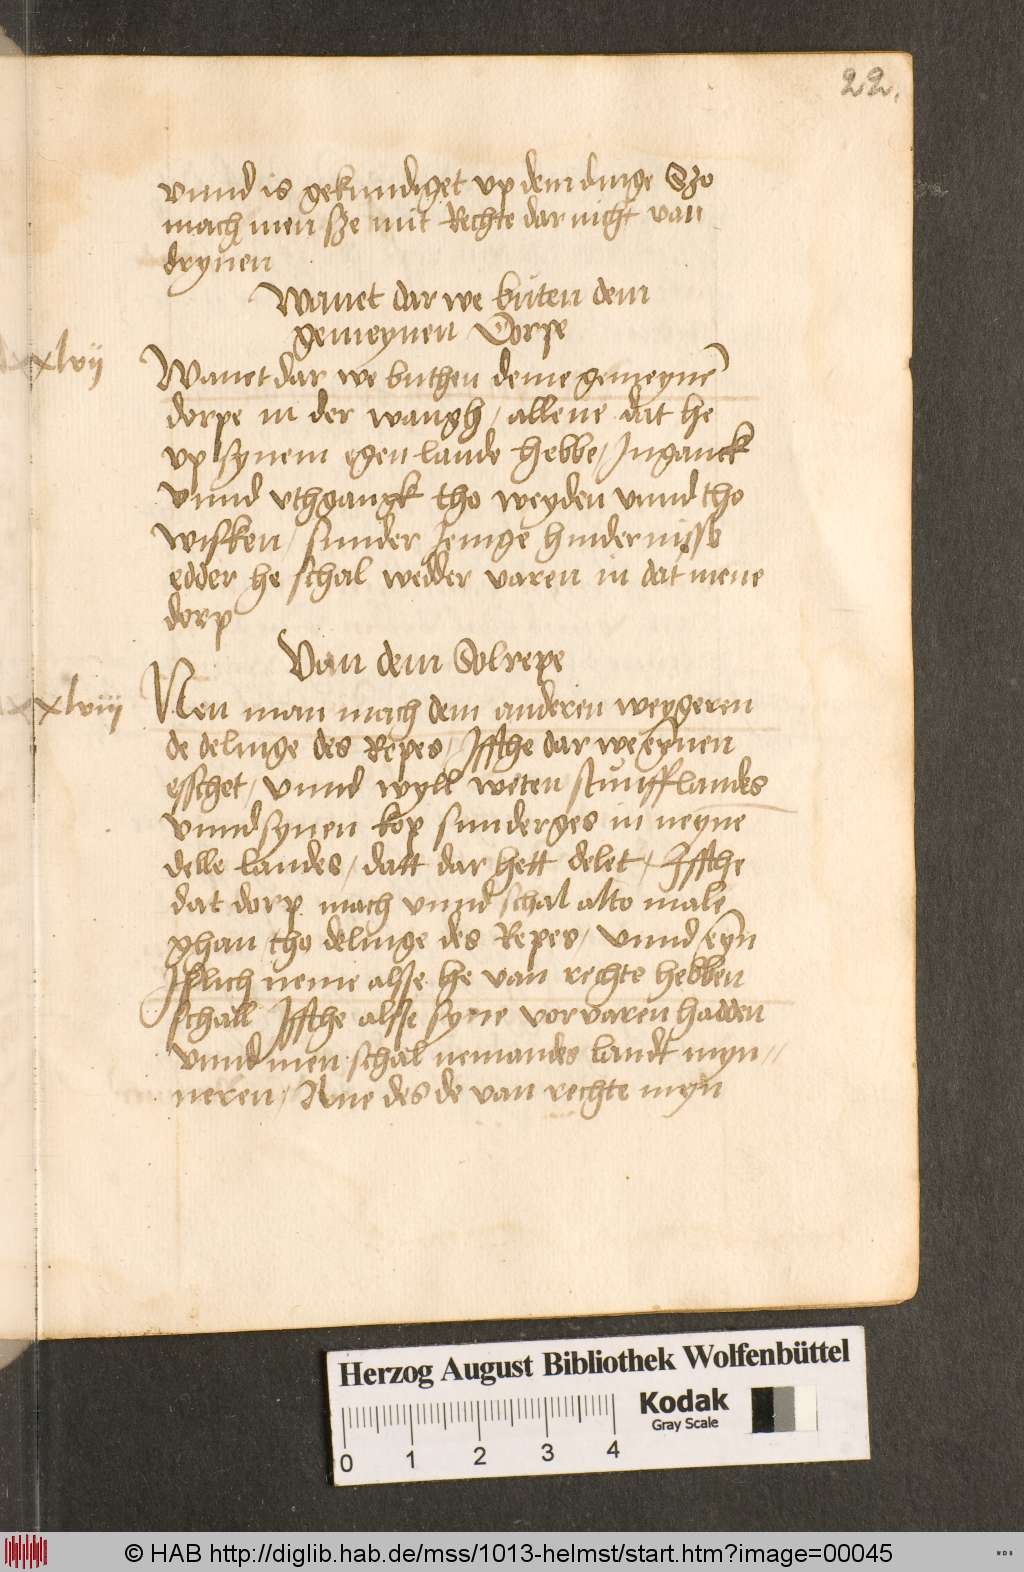 22.
vnnd is gekundiget vp dem dinge Szo
mach men sze mit Rechte dar nicht van
dryuen
Wanet dar we buten dem
gemeynen Dorpe
xlvij
Wanet dar we buthen deme gemeynē
dorpe in der wangh / allene dat he
vp synem egen lande hebbe / Inganck
vnnd vthgangk tho weyden vnnd tho
wisken / sunder jenige hindernisse
edder he schal wedder varen in dat mene
dorp
Van dem Solrepe
xlviij
Nen man mach dem anderen weygeren
de delinge des Repes / Iffthe dar we eynen
esschet / vnnd wyll weten stuuff landes
vnnd synen kop sunderges in neyne
delle landes / datt dar hett delet / Iffthe
dat dorp mach vnnd schal alto male
ghan tho delinge des Repes / vnnd eyn
Islich neme alsse he van rechte hebben
schall Iffthe alsse syne vorvaren hadden
vnnd men schal nemandes landt myn//
neren / Ane des de van rechte myn
Herzog August Bibliothek Wolfenbüttel
Kodak
Gray Scale
0 1 2 3 4
© HAB http://diglib.hab.de/mss/1013-helmst/start.htm?image=00045